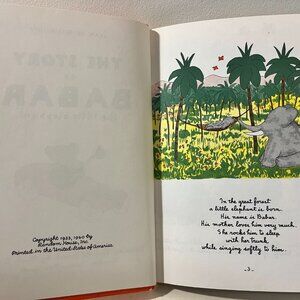 THE STORY
OF
BABAR
Copyright 1933, 1960 by
Random House, Inc.
Printed in the United States of America
In the great forest
a little elephant is born.
His name is Babar.
His mother loves him very much.
She rocks him to sleep
with her trunk
while singing softly to him.
3